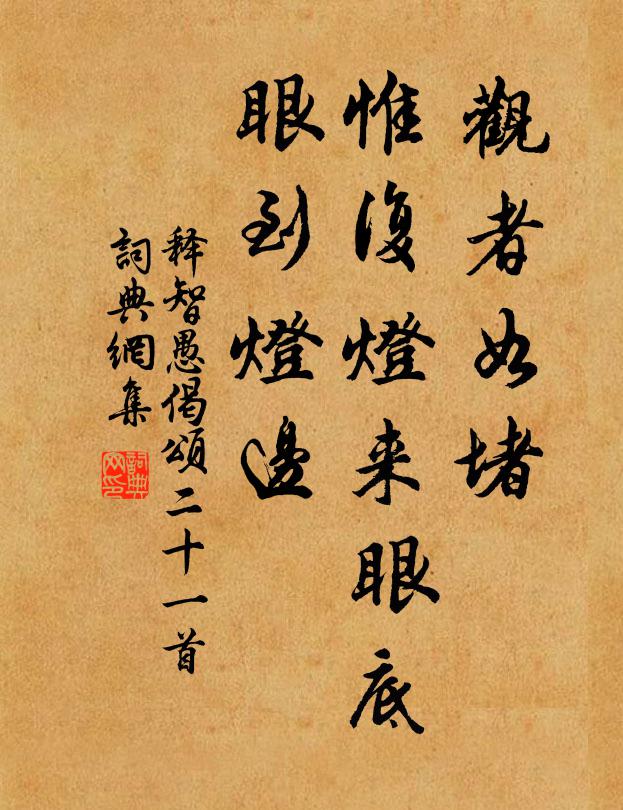 觀者如堵
惟復燈来眼底
眼到燈邊
释智愚偈頌二十一首
詞典網集
詞典
网印